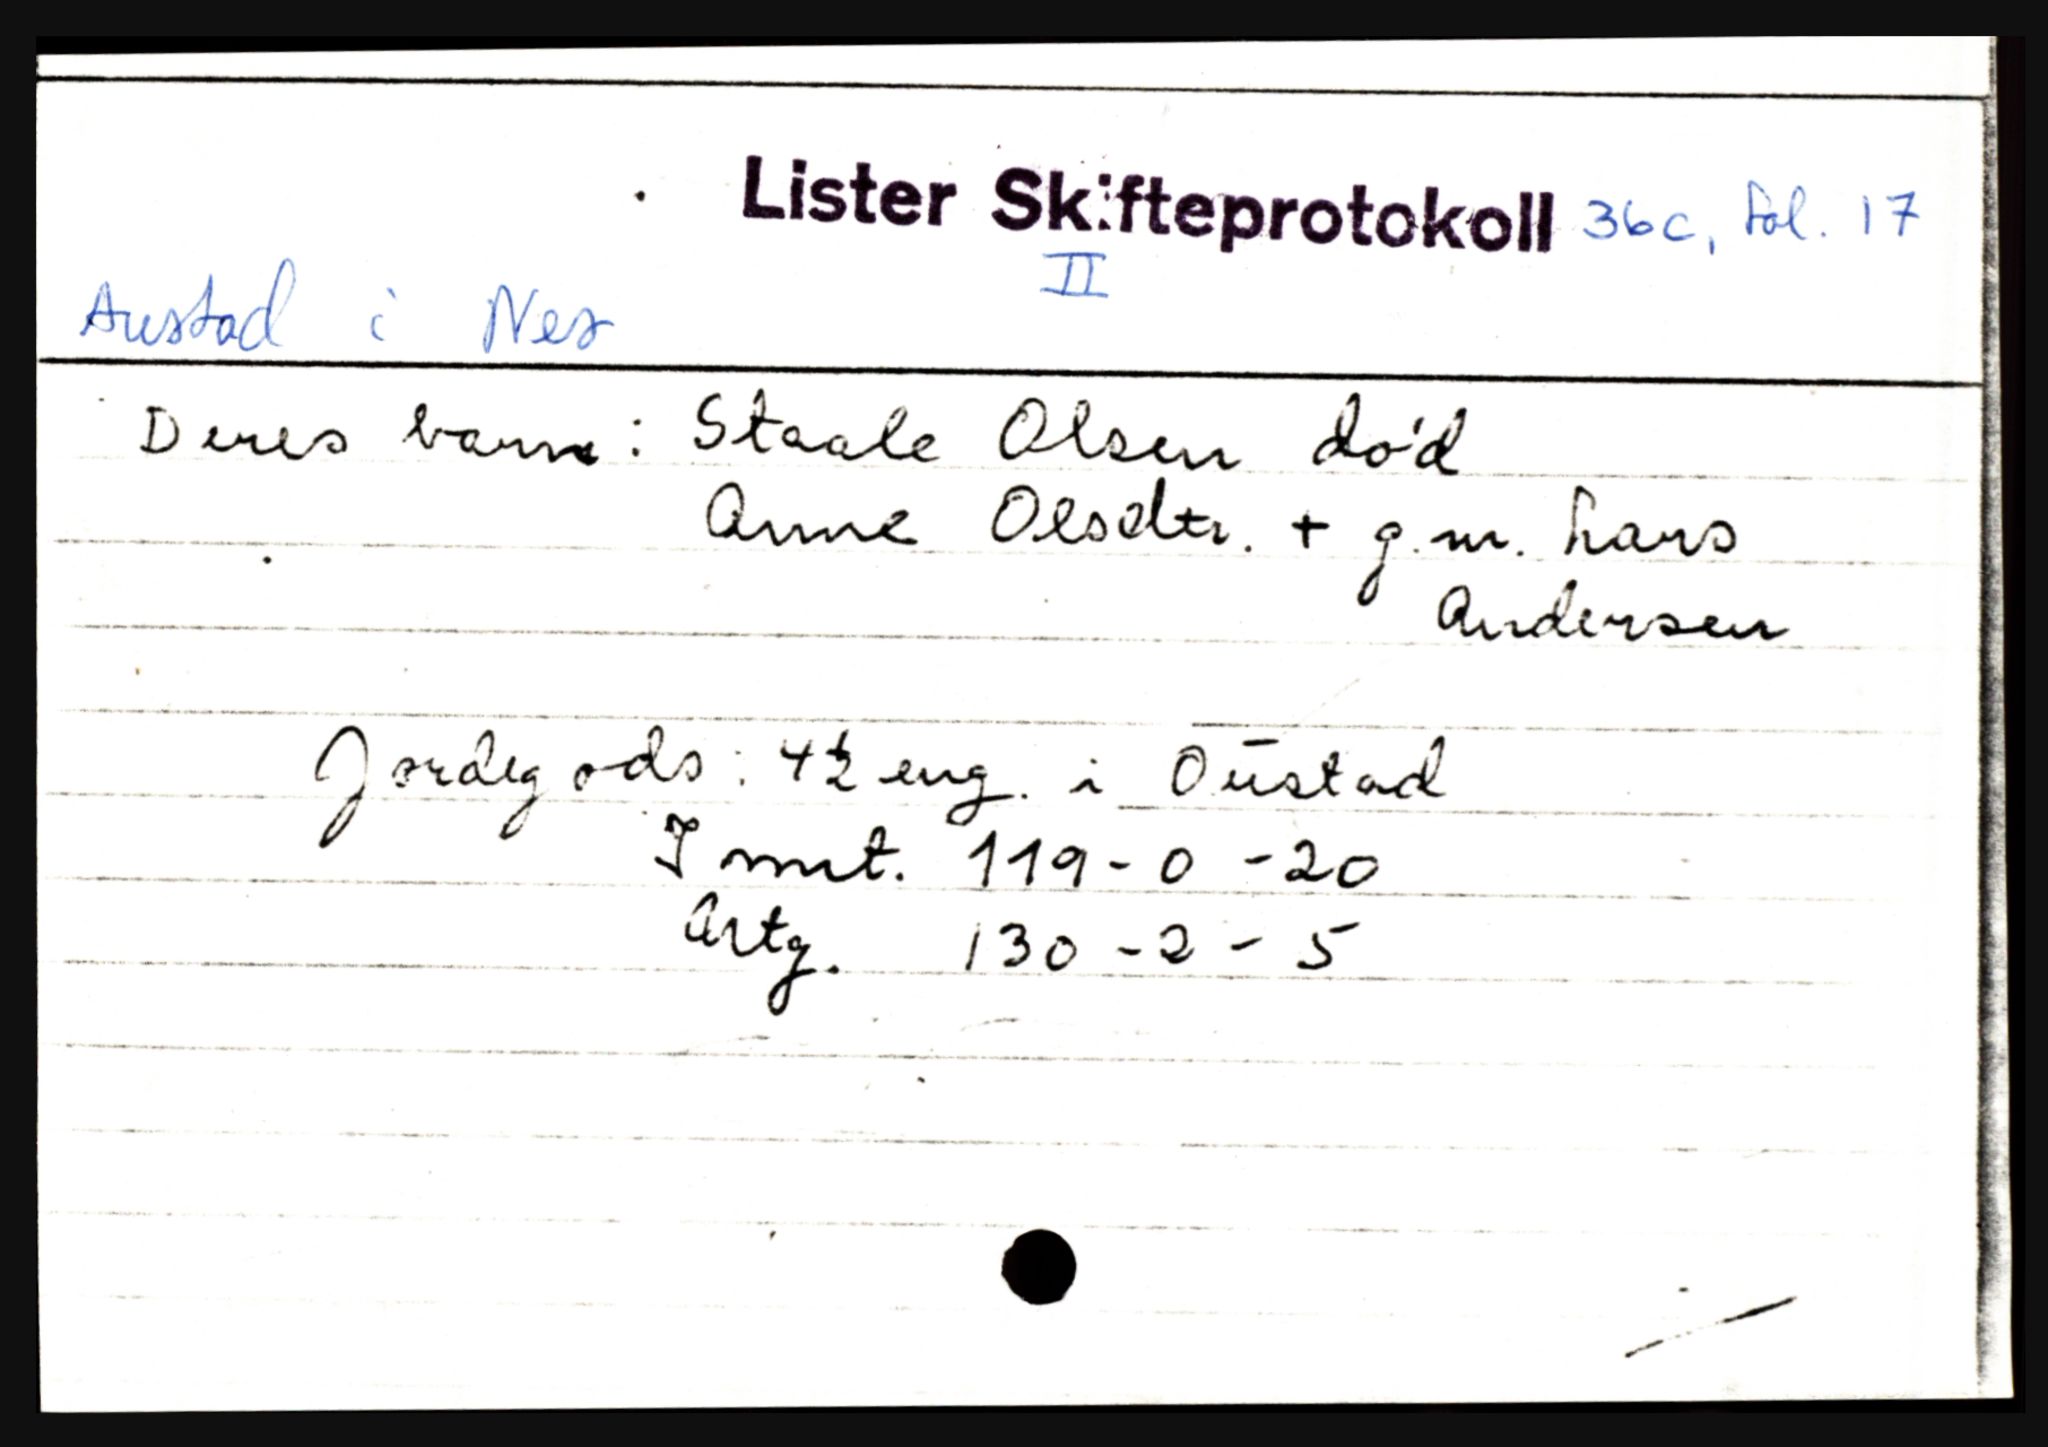 Lister Skifteprotokoll 36c, fol. 17
II
Austad i Nes
Deres barn: Staale Olsen død
Anne Olsdtr. + g.m. Lars
Andersen
Jordegods: 4½ eng. i Oustad
I mt. 119-0-20
Artg. 130-2-5